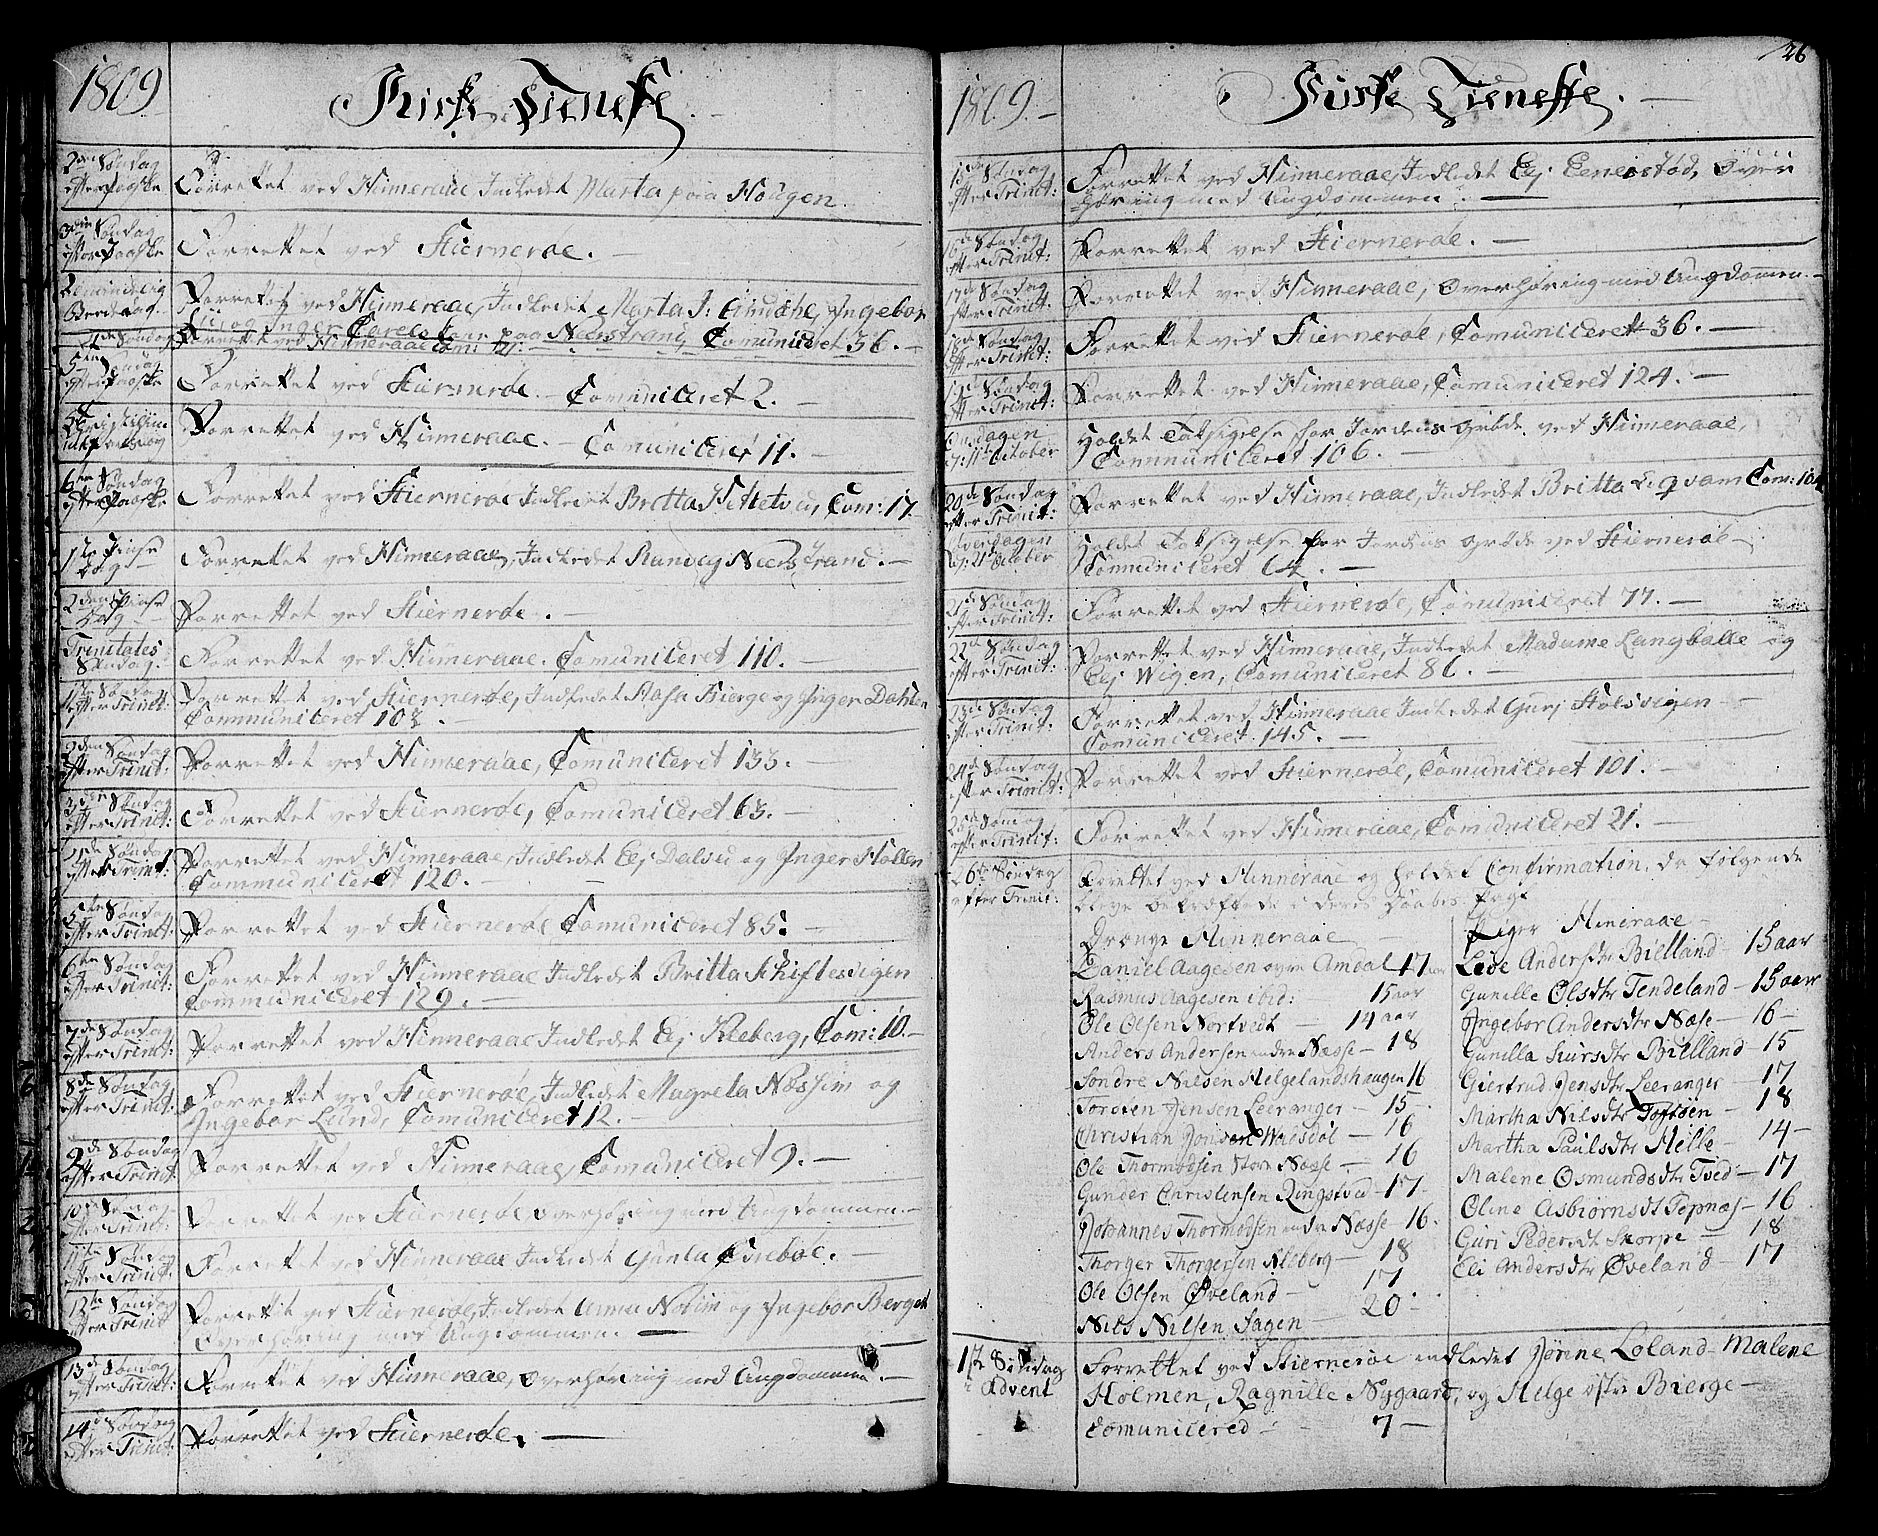 1809
Kirke Tieneste
2den Søndag
efter Paaske
Forrettet ved Hinneraae Indledet Marta paa Hougen.
3die Søndag
efter Paaske
Forrettet ved Stiernerøe. —
Almindelig
Beedag.
Forrettet ved Hinneraae, Indledet Marta J: Ingebor
og Inger paa Neerstrand, Comuniceret 36. —
4de Søndag
Forrettet ved Hinneraae Com: 21. —
5te Søndag
efter Paaske
Forrettet ved Stiernerøe. — Comuniceret 2. —
Christi Him
melfartsdag
Forrettet ved Hinneraae. — Comuniceret 11. —
6te Søndag
efter Paaske
Forrettet ved Stiernerøe Indledet Britta Com: 17
1te Pinse
Dag —
Forrettet ved Hinneraae, Indledet Randeg Neerstrand. —
2den Pinse
Dag —
Forrettet ved Stiernerøe. —
Trinitates
Søndag. —
Forrettet ved Hinneraae. Comuniceret 110. —
1te Søndag
efter Trinit:
Forrettet ved Stiernerøe, Indledet Aasa Bierge og Inger Dahlen
Communiceret 102. —
2den Søndag
efter Trinit:
Forrettet ved Hinneraae, Comuniceret 133.
3den Søndag
efter Trinit:
Forrettet ved Stiernerøe, Comuniceret 63. —
4de Søndag
efter Trinit:
Forrettet ved Hinneraae, Indledet Eej Dalsu og Inger Hollen
Communiceret 120. —
5te Søndag
efter Trinit:
Forrettet ved Stiernerøe Comuniceret 85. —
6te Søndag
efter Trinit:
Forrettet ved Hinneraae Indledet Britta Schiftesvigen
Communiceret 129. —
7de Søndag
efter Trinit:
Forrettet ved Hinneraae Indledet Eej Kleberg, Com: 10. —
8de Søndag
efter Trinit:
Forrettet ved Stiernerøe, Indledet Magrela Næssim og
Ingebor Lund, Comuniceret 12. —
9de Søndag
efter Trinit
Forrettet ved Hinneraae, Comuniceret 9. —
10de Søndag
efter Trinit:
Forrettet ved Stiernerøe, overhøring med Ungdommen. —
11te Søndag
efter Trinit.
Forrettet ved Hinneraae Indledet Gunla Eseboe. —
12te Søndag
efter Trinit
Forrettet ved Stiernerøe, Indledet Anna Nessim og Ingebor Berget
Overhøring med Ungdommen. —
13de Søndag
efter Trinit:
Forrettet ved Hinneraae, overhøring med Ungdommen. —
14de Søndag
efter Trinit:
Forrettet ved Stiernerøe. —
26
1809. —
Kirke Tieneste. —
15de Søndag
efter Trinit:
Forrettet ved Hinneraae, Indledet Eej Eenerstad, Over
høring med Ungdommen. —
16de Søndag
efter Trinit:
Forrettet ved Stiernerøe. —
17de Søndag
efter Trinit:
Forrettet ved Hinneraae, Overhøring med Ungdommen. —
18de Søndag
efter Trinit:
Forrettet ved Stiernerøe, Comuniceret 36. —
19de Søndag
efter Trinit:
Forrettet ved Hinneraae, Comuniceret 124. —
Onsdagen
d: 11te October
Holdet Taksigelse for Jordens Grøde ved Hinneraae,
Communiceret 106. —
20de Søndag
efter Trinit:
Forrettet ved Hinneraae, Indledet Britta Leqvam Com: 104
Løverdagen
d: 21 October
Holdet Taksigelse for Jordens Grøde ved Stiernerøe —
Communiceret 64. —
21de Søndag
efter Trinit:
Forrettet ved Stiernerøe, Comuniceret 77. —
22de Søndag
efter Trinit:
Forrettet ved Hinneraae, Indledet Madame Langballe og
Eej Wigen, Comuniceret 86. —
23de Søndag
efter Trinit:
Forrettet ved Hinneraae Indledet Gurj Holsvigen —
Comuniceret 145. —
24de Søndag
efter Trinit:
Forrettet ved Stiernerøe, Comuniceret 101. —
25de Søndag
efter Trinit:
Forrettet ved Hinneraae, Comuniceret 21. —
26de Søndag
efter Trinit:
Forrettet ved Hinneraae og holdet Confirmation, da følgende
bleve bekræftede i deres Daabes Pagt
Drenge Hinneraae —
Daniel Aagesen øvre Amdal 17 aar
Rasmus Aagesen ibid: 15 aar
Ole Olsen Nortvedt — 14 aar
Anders Andersen indre Næsse — 18
Sondre Nilsen Helgelandshaugen 16
Torsten Jensen Leeranger — 15
Christian Jonsen Walsdøl — 16
Ole Thormodsen store Næsse — 16
Gunder Christensen Ringstved — 17
Johannes Thormodsen indre Næsse — 16.
Thorger Thorgersen Aleberg — 18
Ole Olsen Øveland — 17
Nils Nilsen Fagen — 20
Piger Hineraae —
Live Andersdtr Bielland — 15 aar
Gunille Olsdtr Tendeland — 15 aar
Ingebor Andersdtr Næse — 16 —
Gunilla Siursdtr Bielland — 15
Giertrud Jensdtr Leeranger — 17
Martha Nilsdtr Toftøen — 18
Martha Paulsdtr Helle — 14 —
Malene Osmundsdtr Tved — 17
Oline Asbiørnsdt Tepnæs — 16
Guri Pedersdt Skorpe — 18
Eli Andersdtr Øveland — 17
1te Søndag
i Advent
Forrettet ved Stiernerøe indledet Jørene Loland — Malene
Holmen, Ragnille Nygaard, og Helge østre Bierge —
Comunicered — 7 —